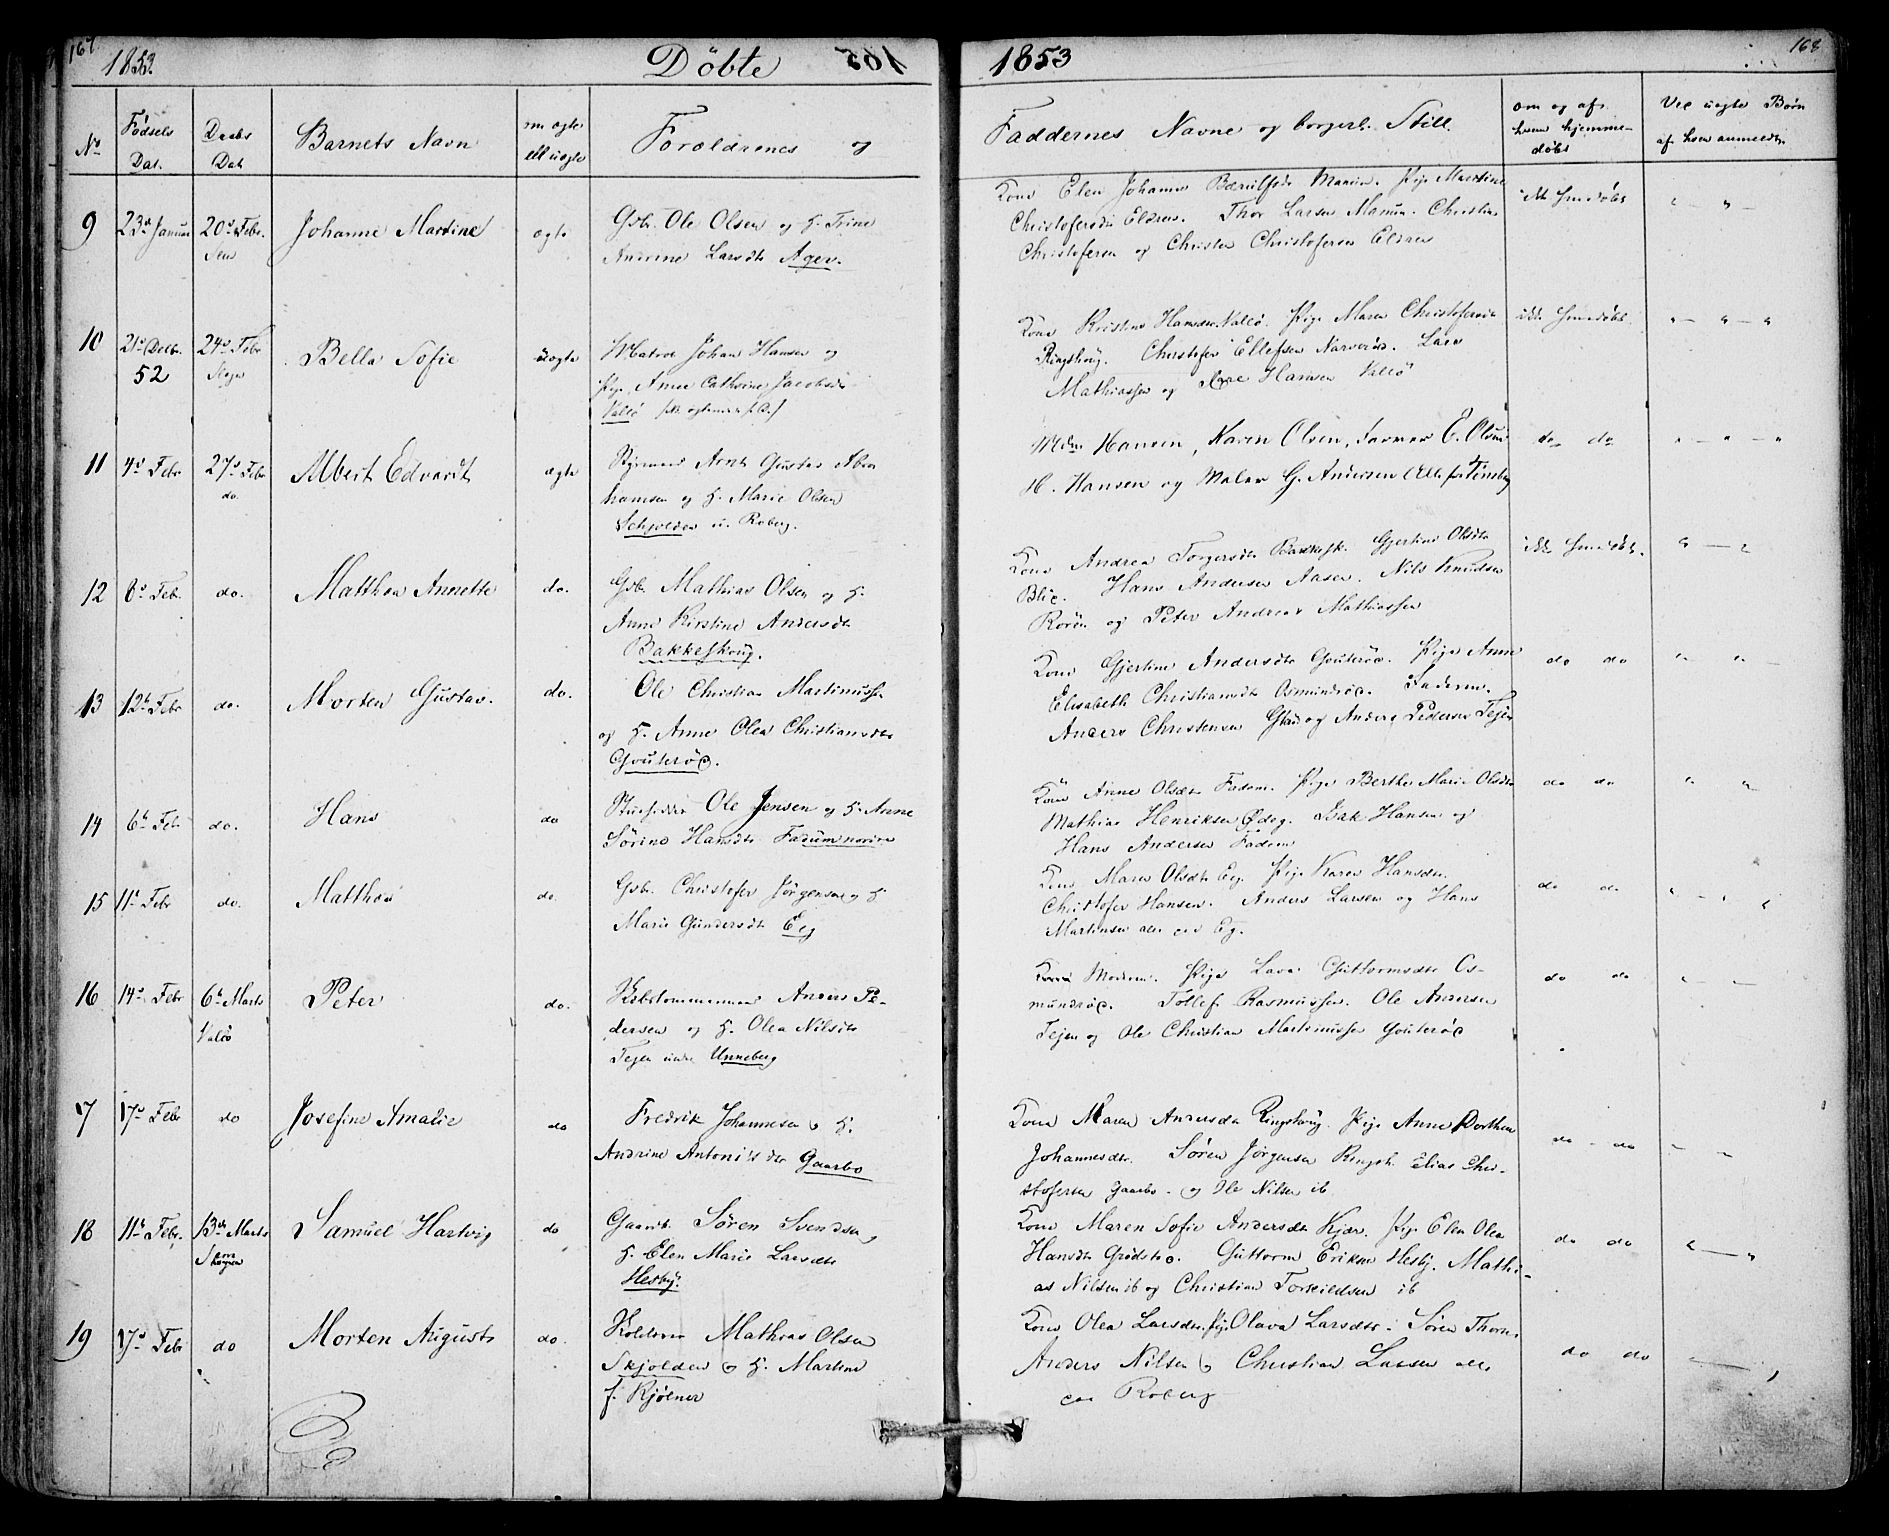 167.
1853.
Döbte
1853
168
No
Fødsels Dat.
Daabs Dat
Barnets Navn
om ægte ell uægte
Foræidrenes og
Faddernes Navne og borgerl. Still.
om og af hvem hjemmedøbt
Ved uægte Børn af hvem anmeldt
9
23d Januar
20d Febr.
Johanne Martine
ægte
Gsbr. Ole Olsen og H. Trine
Andrine Larsdtr Ager.
Kone Elen Johanne Manum. Pige Martine
Christofersdtr Eldren. Thor Larsen Manum. Christian
Christofersen og Christen Christofersen Eldren
ikke hjmdøbt
10
21d Decbr. 52
24d Febr
Bella Sofie
uægte
Matros Johan Hansen og
Pige Anne Cathrine Jacobsdtr
Vallö
Kone Kristine Hansdtr Vallö. Pige Maren Christofersdtr
Ringshoug. Christofer Ellefsen Narverød. Lars
Mathiassen og Hansen Vallö
ikke hjmdøbt
11
4d Febr
27d Febr
do.
Albert Edvardt
ægte
Arnt Gustav Abra
hamsen og H. Marie Olsen
Schjolden u. Roberg.
Mdm Hansen, Karen Olsen, Farver E. Olsen
H. Hansen og Maler G. Andersen Alle fra Tønsberg
do do
12
8d Feb.
do.
Matthea Annette
do.
Gsbr. Mathias Olsen og H.
Anne Kirstine Andersdtr
Bakkeskoug.
Kone Andrea Torgersdtr Bakkesk. Gjertine Olsdtr
Blie. Hans Andersen Aasen. Nils Knudsen
Rorên og Peter Andreas Mathiassen
ikke hjmdøbt.
13
12t Febr
do.
Morten Gustav.
do.
Ole Christian Martinussen
og H. Anne Olea Christiansdtr
Gouterød.
Kone Gjertine Andersdtr Gouterød. Pige Anne
Elisabeth Christiansdtr Osmundrød. Faderen.
Anders Christensen og Anders Pedersen Tejen
do do
14
6t Feb
do.
Hans
do
Ole Jensen og H. Anne
Sörine Hansdtr Fadumnordre
Kone Anne Olsdtr Fadum. Pige Berthe Marie Olsdtr
Mathias Henriksen Ødeg. Hansen og
Hans Andersen Fadum
do do
15
11t Febr
do.
Matthea
do.
Gsbr. Christofer Jörgensen og H
Marie Gundersdtr Eeg
Kone Maren Olsdtr Eeg. Pige Karen Hansdtr.
Christofer Hansen. Anders Larsen og Hans
Martinsen alle paa Eg.
do do
16
14d Febr
6t Marts
Valö
Peter
do.
Anders Pe-
dersen og H. Olea Nilsdtr
Tejen under Unneberg
Moderen. Pige Guttormsdtr Os-
mundrød. Tollef Rasmussen. Ole Andersen
Tejen og Ole Christian Martinussen Gouterød
do do
17
17d Febr
do
Josefine Amalie
do
Fredrik Johannesen og H.
Andrine Antonisdtr Gaarbo
Kone Maren Andersdtr Ringshoug. Pige Anne Dorthea
Johannesdtr. Sören Jörgensen Ringsh. Elias Chri-
stofersen Gaarbo. og Ole Nilsen ib
do do
18
11t Febr.
13de Marts
Sem
Samuel Hartvig
do
Gaardb. Sören Svendsen,
H. Elen Marie Larsdtr
Hesby.
Kone Maren Sofie Andersdtr Kjær. Pige Elen Olea
Hansdtr. Guttorm Eriksen Hesby. Mathi-
as Nilsen ib og Christian Torkildsen ib
do do
19
17d Febr
do
Morten August
do.
Mathias Olsen
Skjolden og H. Martine
f. Kjölner
Kone Olea Larsdtr. Pige Olava Larsdtr. Sören Thorn.
Anders Nilsen og Christian Larsen alle
paa Roberg
do do